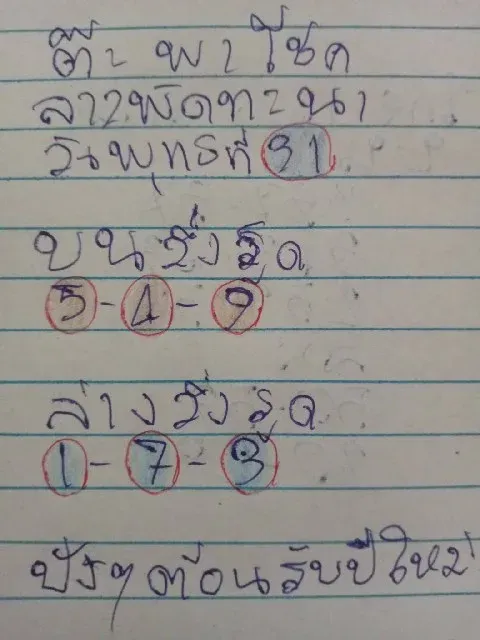 ต๊ะ พา โชค
ลาวพัดทะนา
วันพุทธที่ 31
บน วิ่ง รูด
5-4-9
ล่าง วิ่ง รูด
1-7-3
ปังๆ ต้อนรับปีใหม่